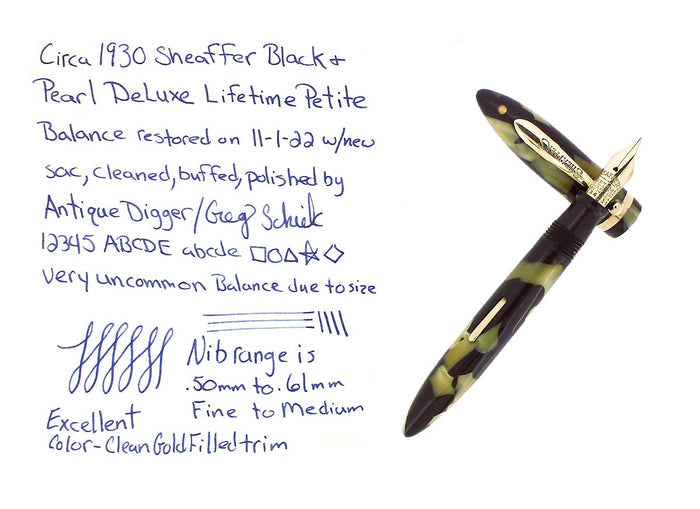 Circa 1930 Sheaffer Black &
Pearl DeLuxe Lifetime Petite
Balance restored on 11-1-22 w/new
sac, cleaned, buffed, polished by
Antique Digger/Greg Schiek
12345 ABCDE abcde □○△☆◇
very uncommon Balance due to size
Nib range is
.50mm to .61mm
Fine to Medium
Excellent
Color-Clean Gold Filled trim